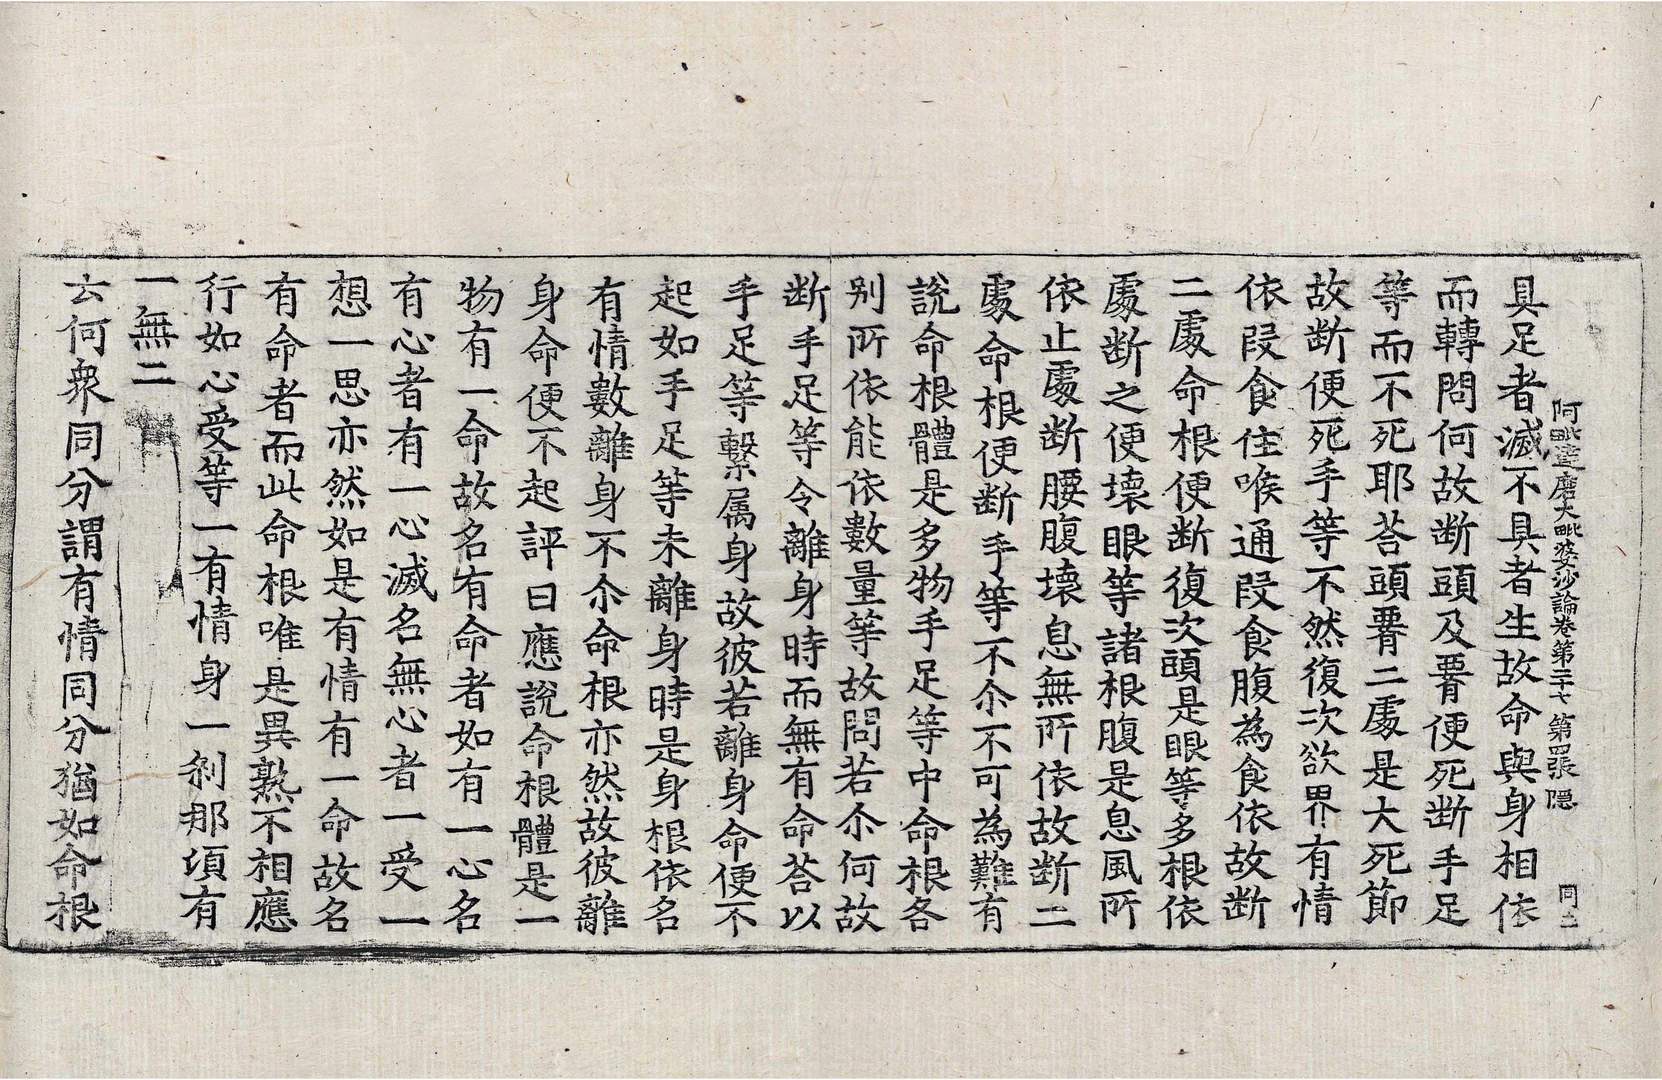 阿毗達磨大毗婆沙論卷第二十七 第四張 隱 同二
具足者滅不具者生故命與身相依
而轉問何故断頭及腰便死断手足
等而不死耶荅頭腰二處是大死節
故断便死手等不然復次欲界有情
依段食住喉通段食腹為食依故断
二處命根便断復次頭是眼等多根依
處断之便壞眼等諸根腹是息風所
依止處断腰腹壞息無所依故断二
處命根便断手等不尒不可為難有
說命根體是多物手足等中命根各
別所依能依數量等故問若尒何故
断手足等令離身時而無有命荅以
手足等繫属身故彼若離身命便不
起如手足等未離身時是身根依名
有情數離身不尒命根亦然故彼離
身命便不起評曰應說命根體是一
物有一命故名有命者如有一心名
有心者有一心滅名無心者一受一
想一思亦然如是有情有一命故名
有命者而此命根唯是異熟不相應
行如心受等一有情身一剎那頃有
一無二
云何衆同分謂有情同分猶如命根